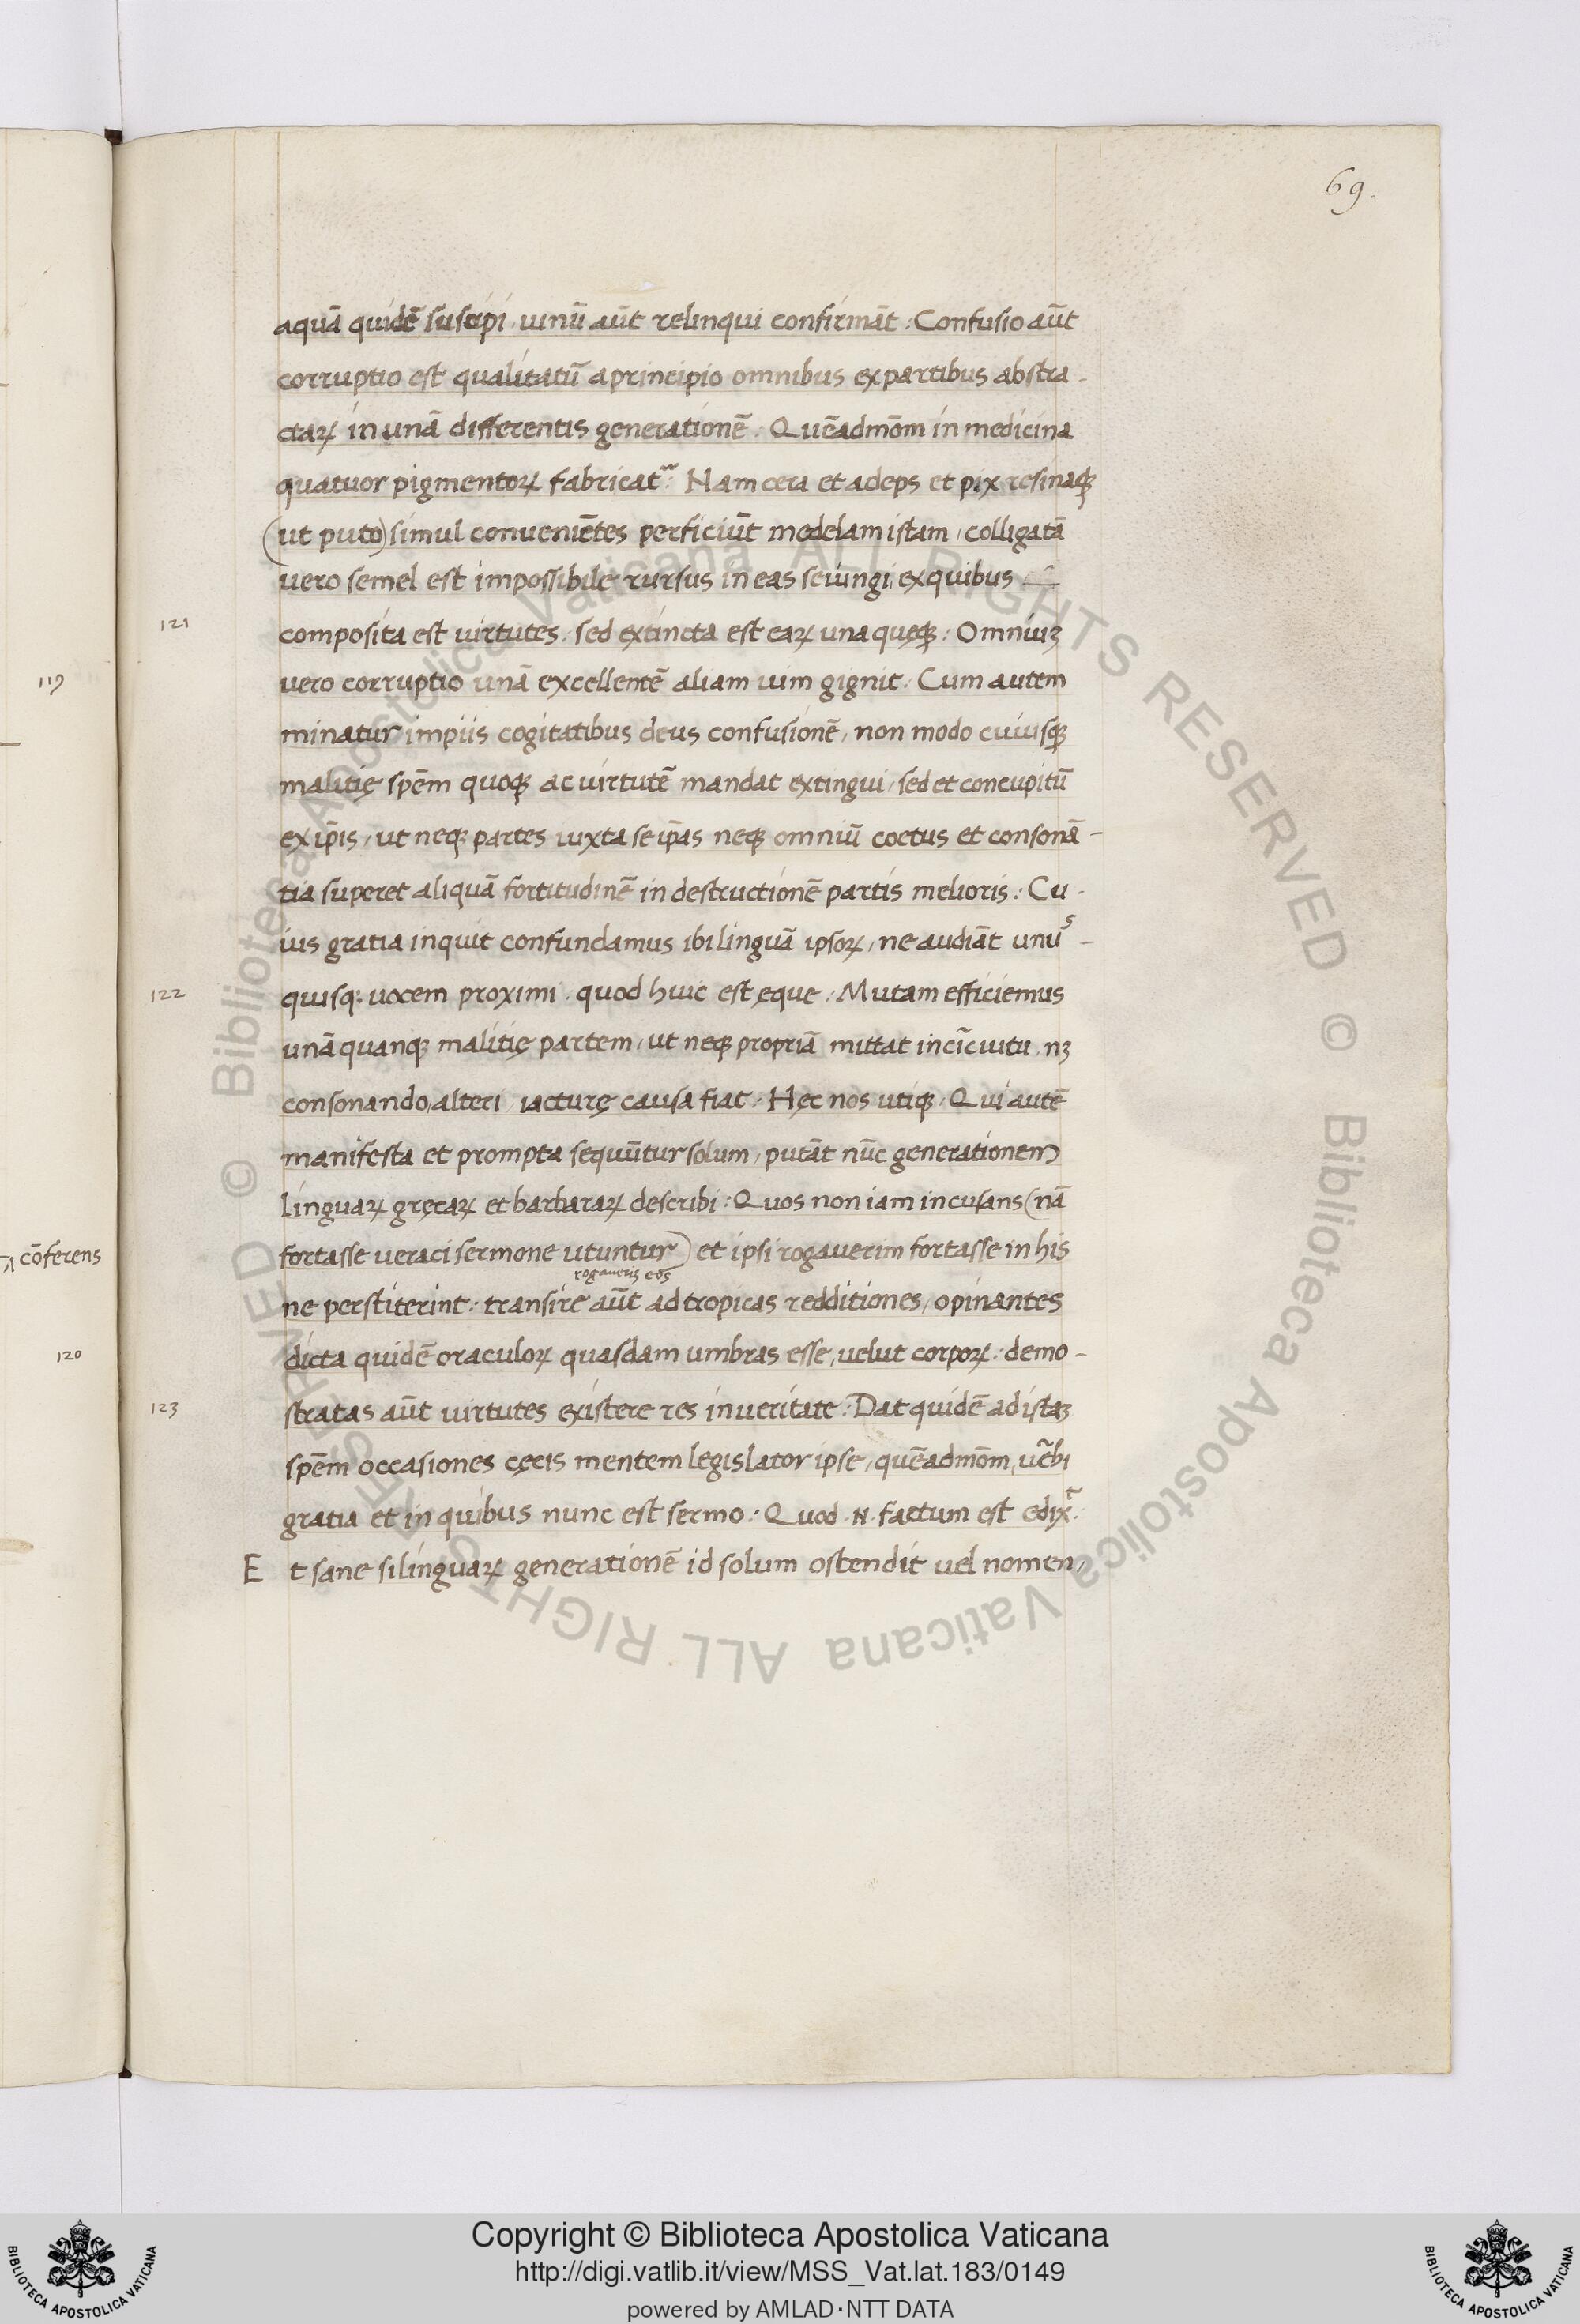 69.
aquã quidẽ suscipi. uinũ aũt relinqui confirmãt: Confusio aũt
corruptio est qualitatũ a principio omnibus ex partibus abstra-
ctaꝝ in unã differentis generationẽ. Quẽadmõm in medicina
quatuor pigmentoꝝ fabricat᷑: Nam cera et adeps et pix resinaqꝫ
(ut puto) simul conueniẽtes perficiũt medelam istam, colligatã
uero semel est impossibile rursus in eas seiungi, ex quibus
121
composita est uirtutes: sed extincta est eaꝝ una quęqꝫ: Omniuꝫ
uero corruptio unã excellentẽ aliam uim gignit: Cum autem
minatur impiis cogitatibus deus confusionẽ, non modo cuiusqꝫ
malitię spẽm quoqꝫ ac uirtutẽ mandat extingui, sed et concupitũ
ex ip̃is, ut neqꝫ partes iuxta se ip̃as neqꝫ omniũ coetus et consonã-
tia superet aliquã fortitudinẽ in destructionẽ partis melioris: Cu-
ius gratia inquit confundamus ibi linguã ipsoꝝ, ne audiãt unus-
122
quisqꝫ uocem proximi. quod huic est ęque: Mutam efficiemus
unã quanqꝫ malitię partem, ut neqꝫ propriã mittat in cĩcuitu. nꝫ
consonando alteri iacturę causa fiat: Hęc nos utiqꝫ. Qui autẽ
manifesta et prompta sequũtur solum, putãt nũc generationem
linguaꝝ gręcaꝝ et barbaraꝝ describi: Quos non iam incusans (nã
fortasse ueraci sermone utuntur) et ipsi rogauerim fortasse in his
rogauerim eos
ne perstiterint: transire aũt ad tropicas redditiones, opinantes
dicta quidẽ oraculoꝝ quasdam umbras esse, uelut corpoꝝ: demo-
123
stratas aũt uirtutes existere res in ueritate: Dat quidẽ ad istaꝫ
spẽm occasiones cęcis mentem legislator ipse, quẽadmõm, uc̃bi
gratia et in quibus nunc est sermo: Quod .N. factum est edixᵗ:
Et sane si linguaꝝ generationẽ id solum ostendit uel nomen,
119
cõferens
120
© Biblioteca Apostolica Vaticana ALL RIGHTS RESERVED © Biblioteca Apostolica Vaticana ALL RIGHTS RESERVED
Copyright © Biblioteca Apostolica Vaticana
http://digi.vatlib.it/view/MSS_Vat.lat.183/0149
powered by AMLAD·NTT DATA
BIBLIOTECA APOSTOLICA VATICANA
BIBLIOTECA APOSTOLICA VATICANA